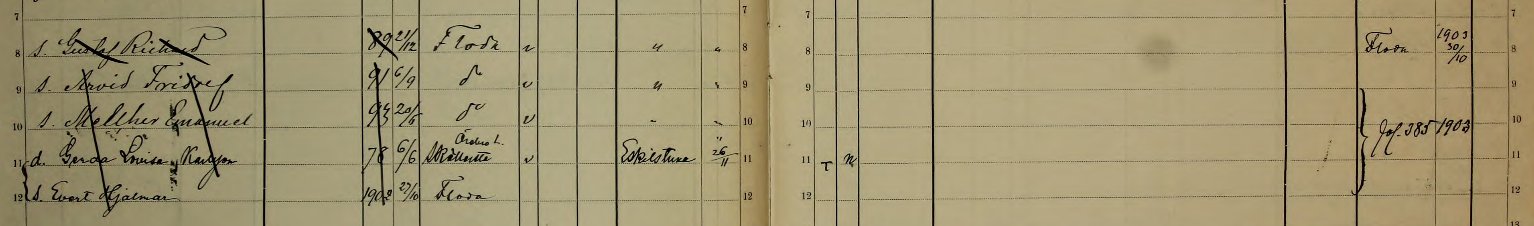 7 7 7 7
8 s. Gustaf Richard 89 21/12 Floda v " " 8 8 Floda 1903 30/10 8
9 s. Arvid Fridolf 91 6/9 do v " " 9 9 9
10 s. Melcher Emanuel 93 20/6 do v " " 10 10 Jof. 385 1903 10
Örebro l.
11 d. Gerda Lovisa Karlson 78 6/6 v Eskilstuna 26/11 11 11 T 11
12 s. Evert Hjalmar 1902 27/10 Floda 12 12 12